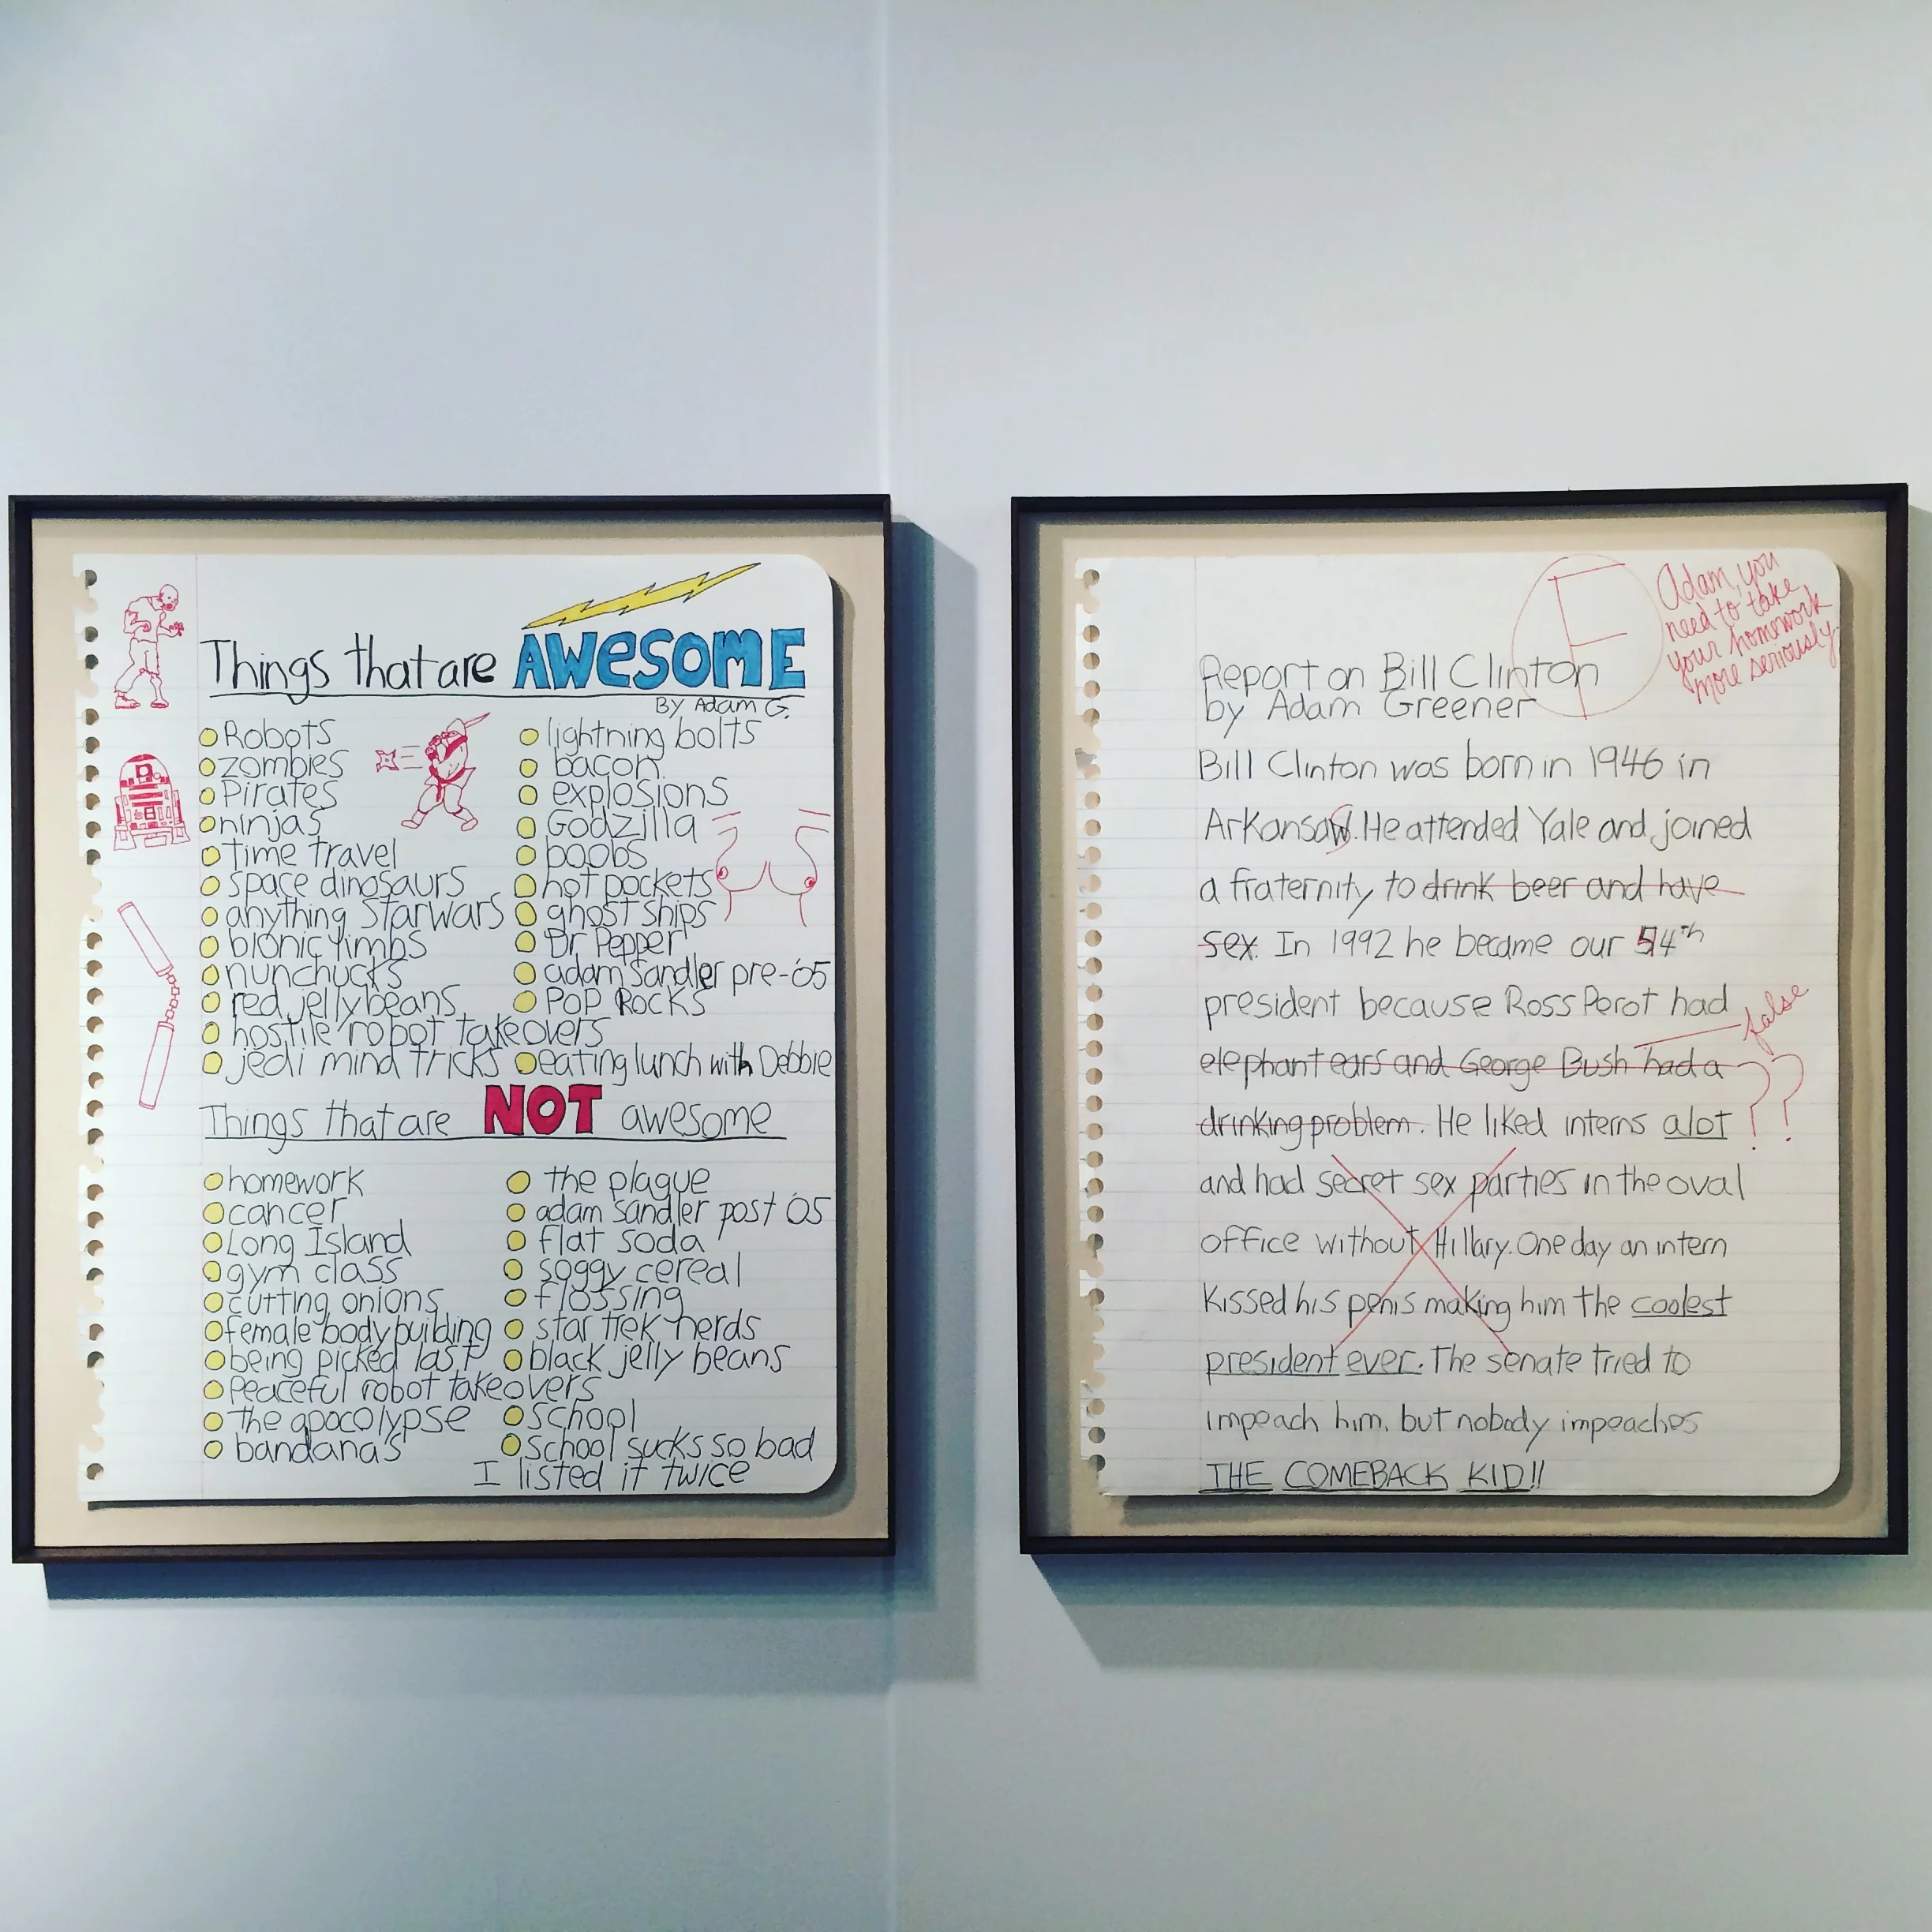 Things that are AWESOME
By Adam G.
Robots
zombies
Pirates
ninjas
time travel
space dinosaurs
anything Starwars
bionic limbs
nunchucks
red jellybeans
hostile robot takeovers
jedi mind tricks
lightning bolts
bacon
explosions
Godzilla
boobs
hot pockets
ghost ships
Dr Pepper
adam sandler pre-'05
POP ROCKS
eating lunch with Debbie
Things that are NOT awesome
homework
cancer
Long Island
gym class
cutting onions
female body building
being picked last
peaceful robot takeovers
the apocolypse
bandana's
the plague
adam sandler post '05
flat soda
soggy cereal
flossing
star trek nerds
black jelly beans
school
school sucks so bad
I listed it twice
F
Adam, you
need to take
your homework
more seriously.
Report on Bill Clinton
by Adam Greener
Bill Clinton was born in 1946 in
Arkansaw. He attended Yale and joined
a fraternity to drink beer and have
sex. In 1992 he became our 54th
president because Ross Perot had
false
elephant ears and George Bush had a
drinking problem. He liked interns alot ??
and had secret sex parties in the oval
office without Hillary. One day an intern
kissed his penis making him the coolest
president ever. The senate tried to
impeach him, but nobody impeaches
THE COMEBACK KID!!